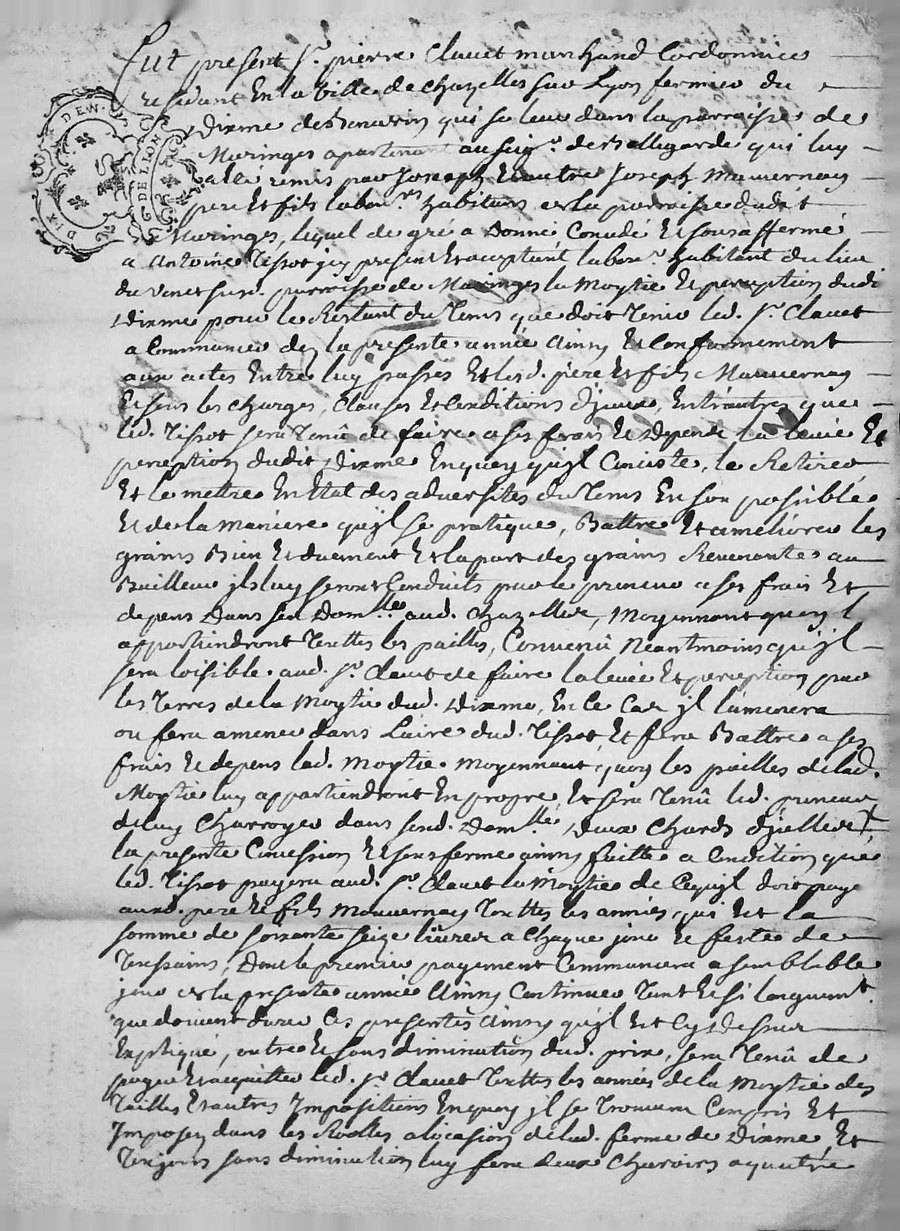 Fut present Sr. pierre Clauet marchand Cordonnier
residant En la Ville de chazelles sur Lyon fermier du
Dixme de qui se leue dans la parroisse de
Maringes apartenant au seigr. de Bellegarde qui luy
a Esté remis par Joseph Et autre Joseph Mauvernay
pere Et fils labourrs. habitans En la parroisse dudit
Maringes, lequel de gré a Donné Concédé Et sousaffermé
a Antoine Tissot jcy present Et aceptant labourr. habitant du lieu
du parroisse de Maringes la Moytié Et perception dudi
Dixme pour le Restant du Tems que doit Tenir led. Sr. Clauet
a Commancer dez la presente année Ainsy Et Conformement
aux actes Entre luy passés Et lesd. pere Et fils Mauvernay
Et sous les charges, Clauses Et Conditions d'jceux, Entr'autres que
led. Tissot sera Tenû de faire a ses frais Et depends la leuée Et
perception dudit Dixme Enquoy qu'jl Conciste, le Retirer
Et le mettre En Etat des adversités du Tems En son possible
Et de la maniere qu'jl se pratique, Battre Et ameliorer les
grains Bien Et duement Et la part des grains Revenante au
Bailleur jls luy seront Conduits par le preneur a ses frais Et
depens Dans son Domlle. aud. Chazelles, Moyennant quoy l
appartiendront Touttes les pailles, Convenû Neantmoins qu'jl
sera loisible aud. Sr. Clauet de faire la leuée Et perception par
les Terres de la Moytié dud. Dixme, En ce Cas jl l'amenera
ou fera amener dans l'aire dud. Tissot, Et fera Battre a ses
frais Et depens lad. Moytié Moyennant quoy les pailles de lad.
Moytié luy appartiendront En propre, Et sera Tenû led. preneur
de luy Charroyer dans sond. Domlle. Deux Chards d'jcelles
la presente Concession Et sousferme ainsy faitte a Condition que
led. Tissot payera aud. Sr. Clauet la Moytié de Cequ'jl doit paye
auxd. pere Et fils Mauvernay Touttes les années, qui Est la
somme de soixante seize liures a Chaque jour Et feste de
Toussains, Dont le premier payement Commancera a semblable
jour En la presente année Ainsy Continuer Tant Et si longuemt.
que doivent durer Ces presentes Ainsy qu'jl Est Cy Dessus
Expliqué, outre Et sans diminution dud. prix, sera Tenû de
payer Et acquitter led. Sr. Clauet Touttes les années de la Moytié des
Tailles Et autres Impositions Enquoy jl se Trouuera Compris Et
Imposez dans les Roolles a locasion de lad. ferme de Dixme, Et
Toujours sans diminution luy fera deux Charois a quatre
DIX DEN.
DE LION